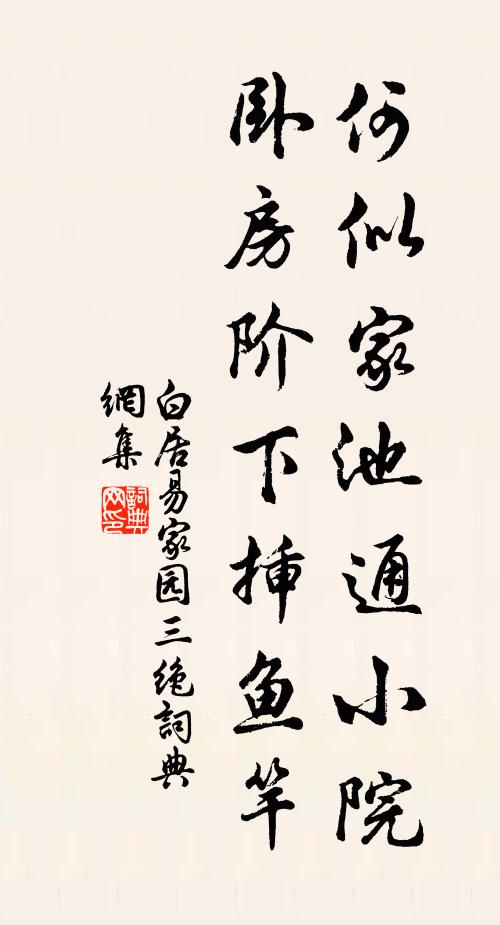 何似家池通小院
卧房阶下插鱼竿
白居易家园三绝詞典
網集
詞典
网印